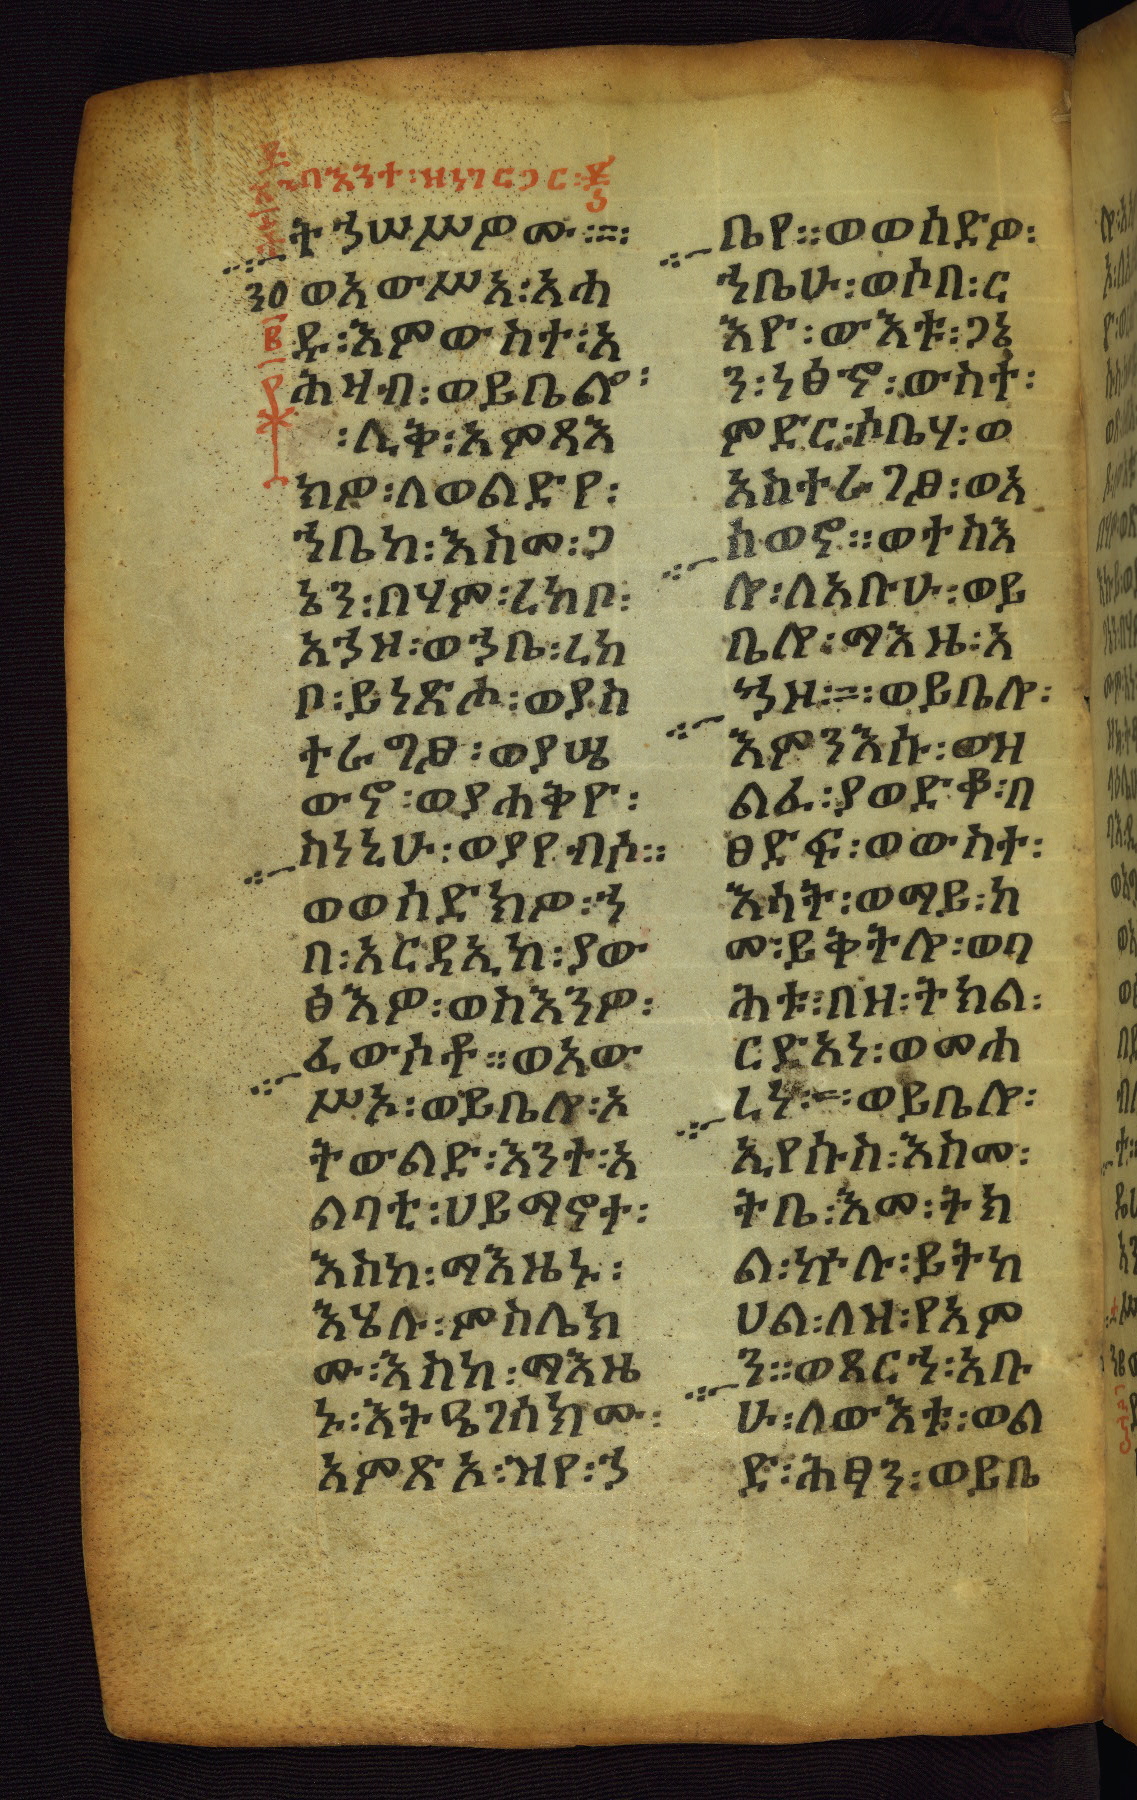 በእንተ፡ዘነገርጋር፡
ትኀሠሥዎሙ፡።፡
ወአውሥአ፡አሐ
ዱ፡እምውስተ፡አ
ሕዛብ፡ወይቤሎ፡
፡ሊቅ፡አምጻእ
ክዎ፡ለወልድየ፡
ኀቤከ፡እስመ፡ጋ
ኔን፡በሃም፡ረከቦ፡
አኀዞ፡ወኀቤ፡ረከ
ቦ፡ይነጽሖ፡ወያስ
ተራግፆ፡ወያሤ
ውኖ፡ወያሐቅዮ፡
ስነኒሁ፡ወያየብሶ።
ወወሰድክዎ፡ኀ
በ፡አርዳኢከ፡ያው
ፅእዎ፡ወስእንዎ፡
ፈውሶቶ።ወአው
ሥኦ፡ወይቤሎ፡ኦ
ትውልድ፡እንተ፡አ
ልባቲ፡ሀይማኖተ፡
እስከ፡ማእዜኑ፡
እሄሉ፡ምስሌክ
ሙ፡እስከ፡ማእዜ
ኑ፡እትዔገሰክሙ፡
አምጽኦ፡ዝየ፡ኀ
ቤየ።ወወሰድዎ፡
ኀቤሁ፡ወሶበ፡ር
እዮ፡ውእቱ፡ጋኔ
ን፡ነፅኖ፡ውስተ፡
ምድር፡ሶቤሃ፡ወ
አስተራገፆ፡ወአ
ስወኖ።ወተስእ
ሎ፡ለአቡሁ፡ወይ
ቤሎ፡ማእዜ፡አ
ኀዞ፡።፡ወይቤሎ፡
እምንእሱ፡ወዝ
ልፈ፡ያወድቆ፡በ
ፀድፍ፡ወውስተ፡
እሳት፡ወማይ፡ከ
መ፡ይቅትሎ፡ወባ
ሕቱ፡በዘ፡ትክል፡
ርድአነ፡ወመሐ
ረነ፡።፡ወይቤሎ፡
ኢየሱስ፡እስመ፡
ትቤ፡እመ፡ትክ
ል፡ኵሉ፡ይትከ
ሀል፡ለዝ፡የአም
ን።ወጸርኀ፡አቡ
ሁ፡ለውእቱ፡ወል
ድ፡ሕፃን፡ወይቤ